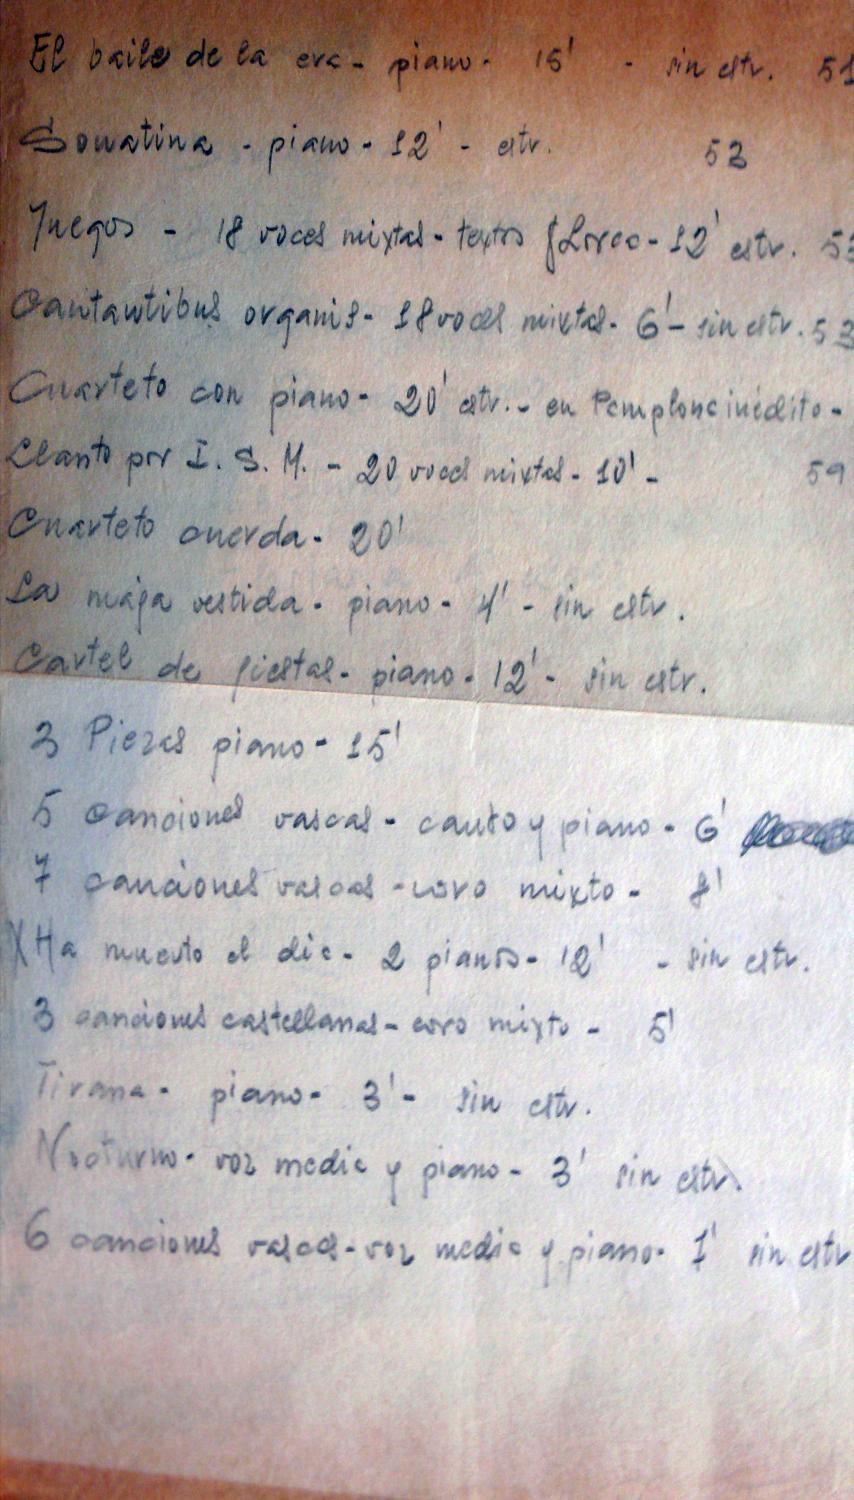 El baile de la era - piano - 15' - sin estr. 51
Sonatina - piano - 12' - estr. 53
Juegos - 18 voces mixtas - textos Lorca - 12' estr. 53
Cantantibus organis - 18 voces mixtas - 6' - sin estr. 53
Cuarteto con piano - 20' estr. - en Pamplona inédito -
Llanto por I. S. M. - 20 voces mixtas - 10' - 59
Cuarteto cuerda - 20'
La maja vestida - piano - 4' - sin estr.
Cartel de fiestas - piano - 12' - sin estr.
3 Piezas piano - 15'
5 canciones vascas - canto y piano - 6'
7 canciones vascas - coro mixto - 8'
X Ha muerto el día - 2 pianos - 12' - sin estr.
3 canciones castellanas - coro mixto - 5'
Tirana - piano - 3' - sin estr.
Nocturno - voz media y piano - 3' sin estr.
6 canciones vascas - voz media y piano - 1' sin estr